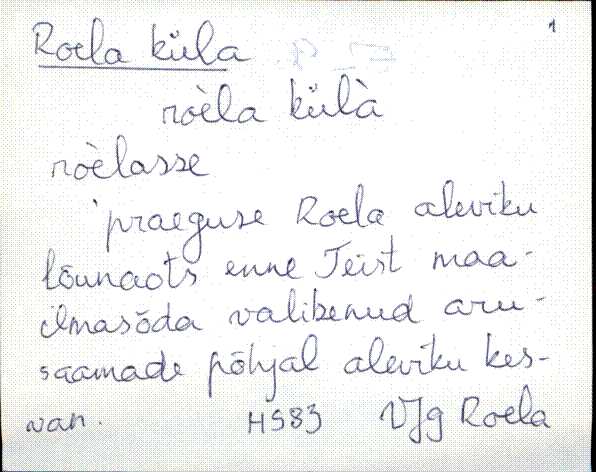 1
Roela küla
ròèla külà
ròèlasse
'praeguse Roela aleviku
lõunaots enne Teist maa-
ilmasõda valitsenud aru-
saamade põhjal aleviku kes-
van.
HS83 VJg Roela